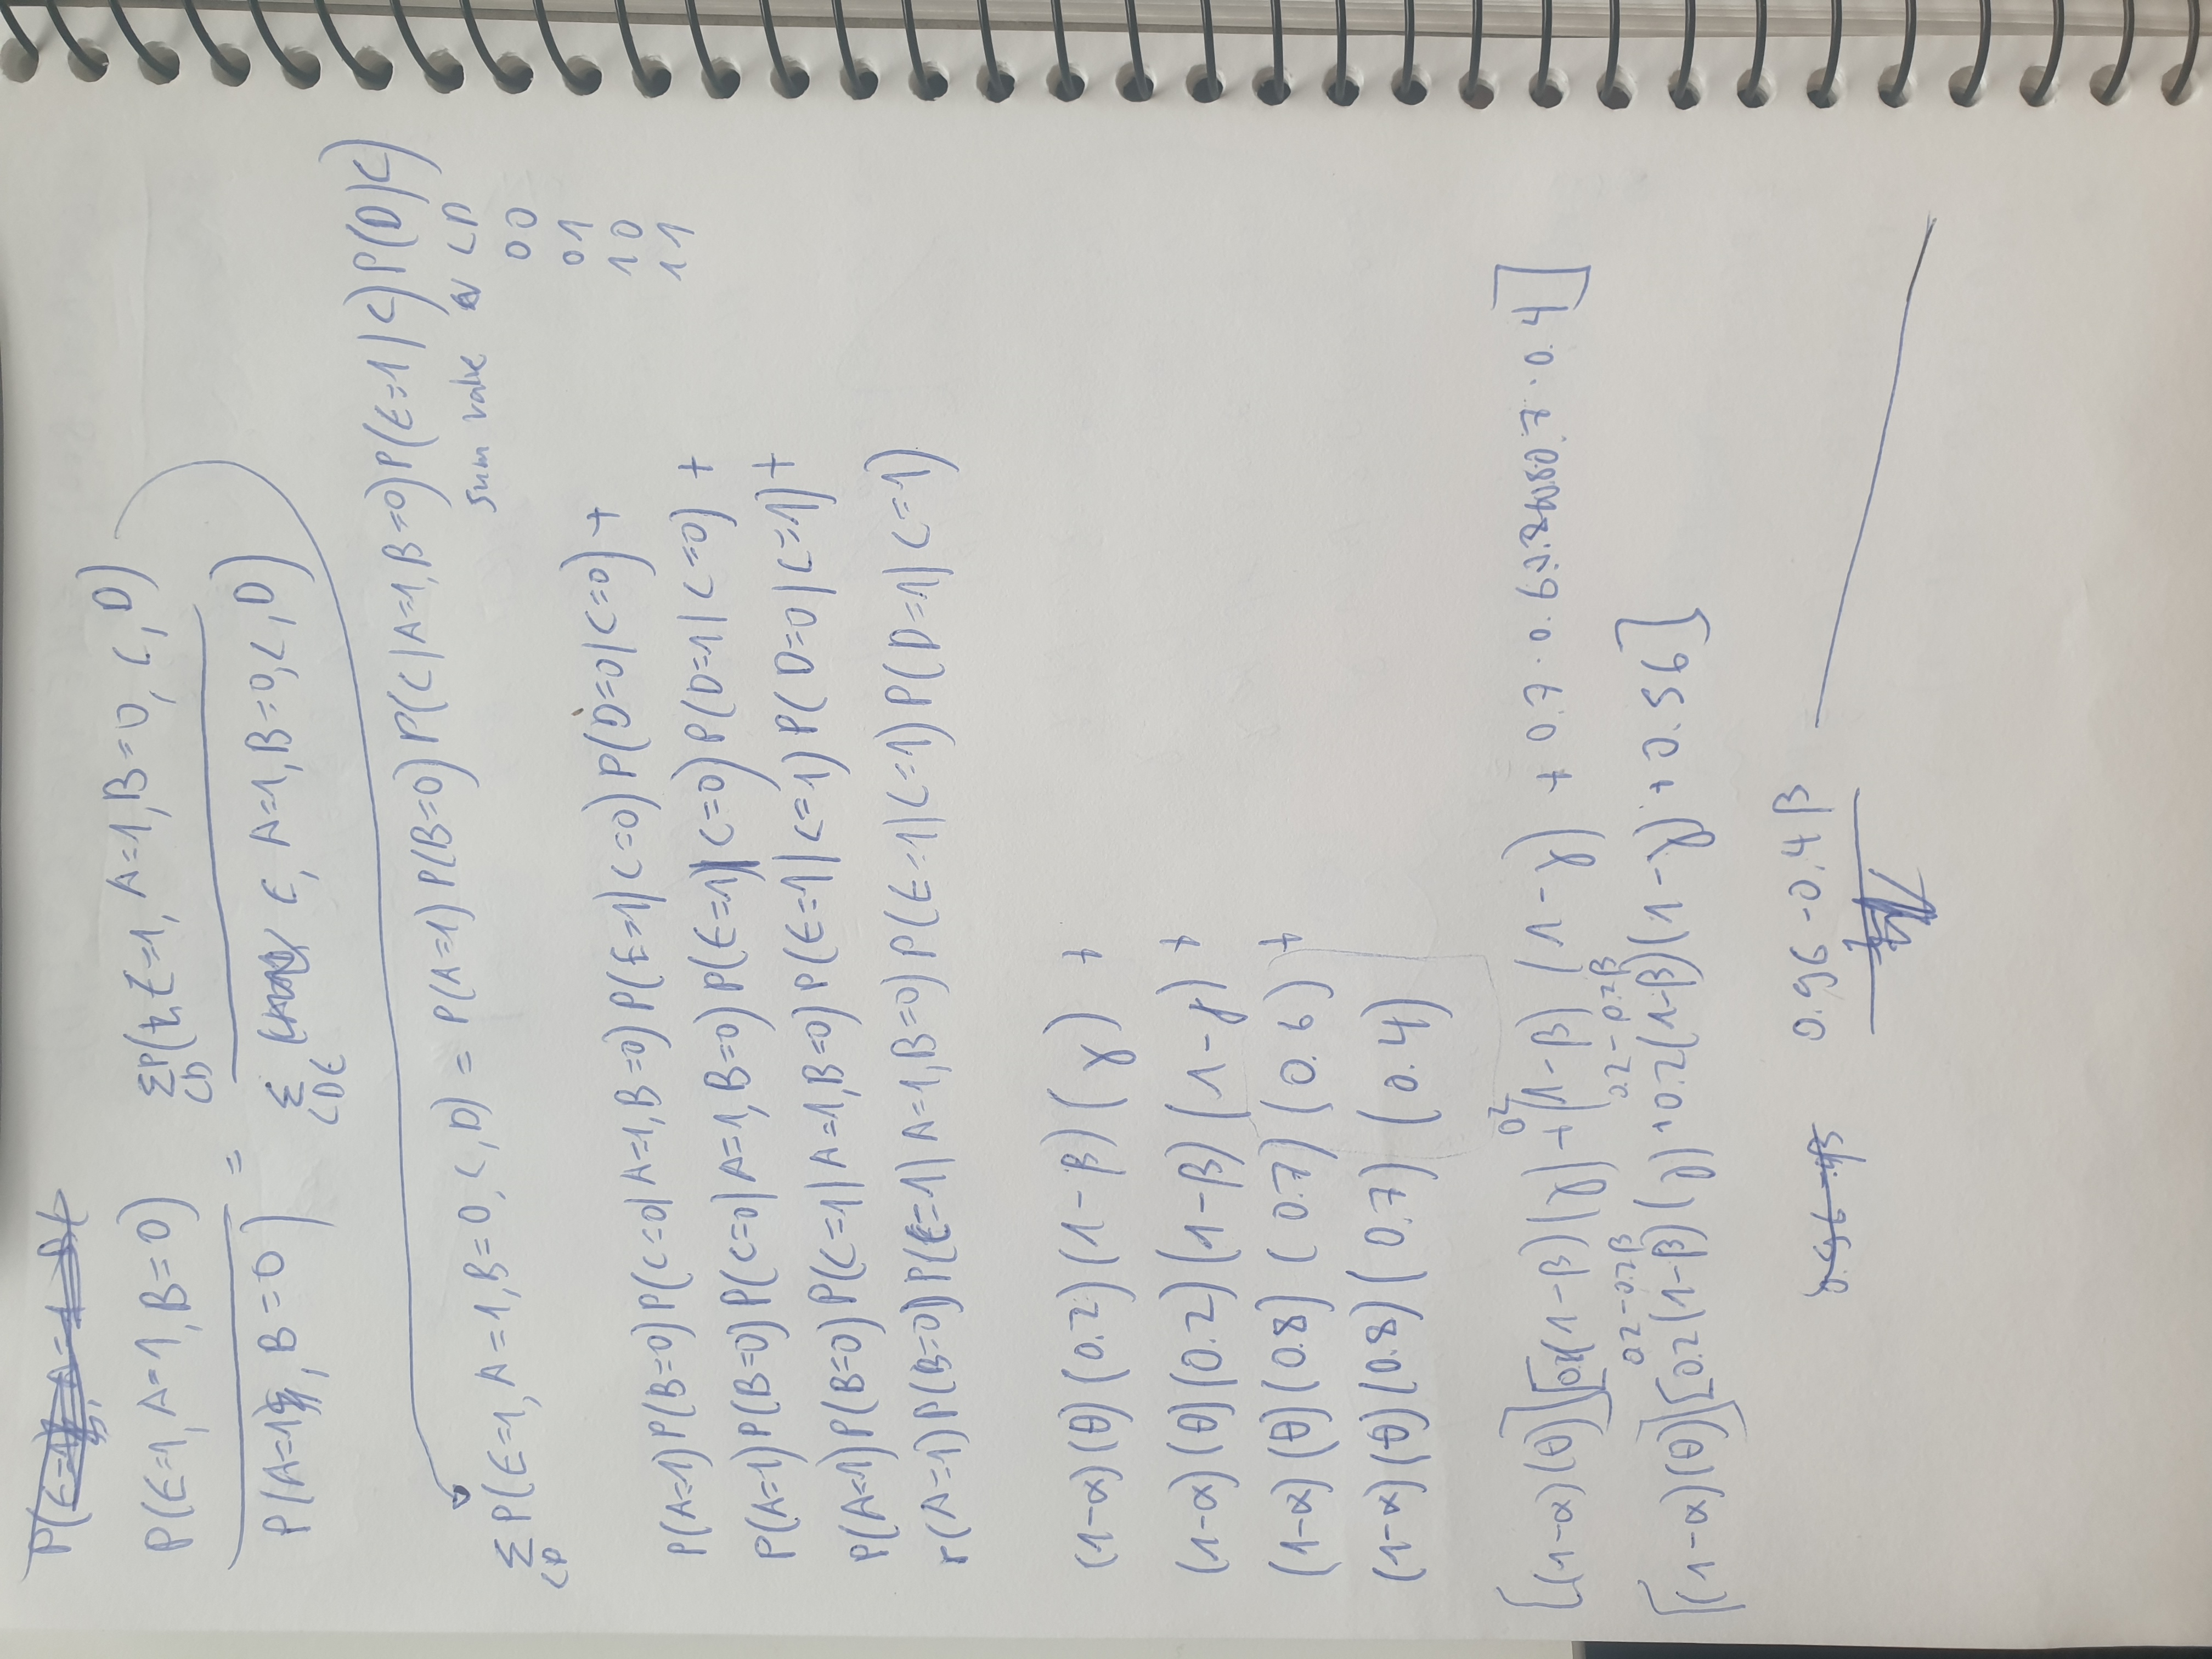 P(E=1, A=1 B(
P(E=1, A=1, B=0) / P(A=1, B=0) = Σ_CD P(E=1, A=1, B=0, C, D) / Σ_CDE E, A=1, B=0, C, D)
Σ_CD P(E=1, A=1, B=0, C, D) = P(A=1) P(B=0) P(C|A=1, B=0) P(E=1|C) P(D|C)
sum value CD
00
01
10
11
P(A=1) P(B=0) P(C=0|A=1, B=0) P(E=1|C=0) P(D=0|C=0) +
P(A=1) P(B=0) P(C=0|A=1, B=0) P(E=1|C=0) P(D=1|C=0) +
P(A=1) P(B=0) P(C=1|A=1, B=0) P(E=1|C=1) P(D=0|C=1) +
P(A=1) P(B=0) P(C=1|A=1, B=0) P(E=1|C=1) P(D=1|C=1)
(1-α)(θ)(0.2)(1-β)(γ) +
(1-α)(θ)(0.2)(1-β)(1-γ) +
(1-α)(θ)(0.8)(0.7)(0.6) +
(1-α)(θ)(0.8)(0.7)(0.4)
[(1-α)(θ)][0.2(1-β)(γ) + 0.2(1-β)(1-γ) + 0.7·0.6·0.8 0.7·0.4]
0.2-0.2β 0.2-0.2β
[(1-α)(θ)][0.2(1-β)(γ) + 0.2(1-β)(1-γ) + 0.56]
0.96-β 0.96-0.4β